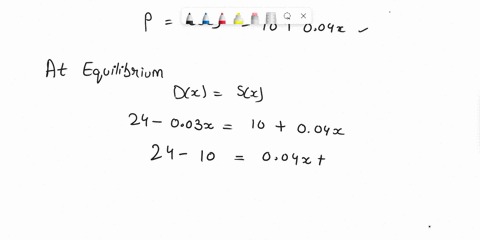 P = = 10 + 0.04x
At Equilibrium
D(x) = S(x)
24 - 0.03x = 10 + 0.04x
24 - 10 = 0.04x +